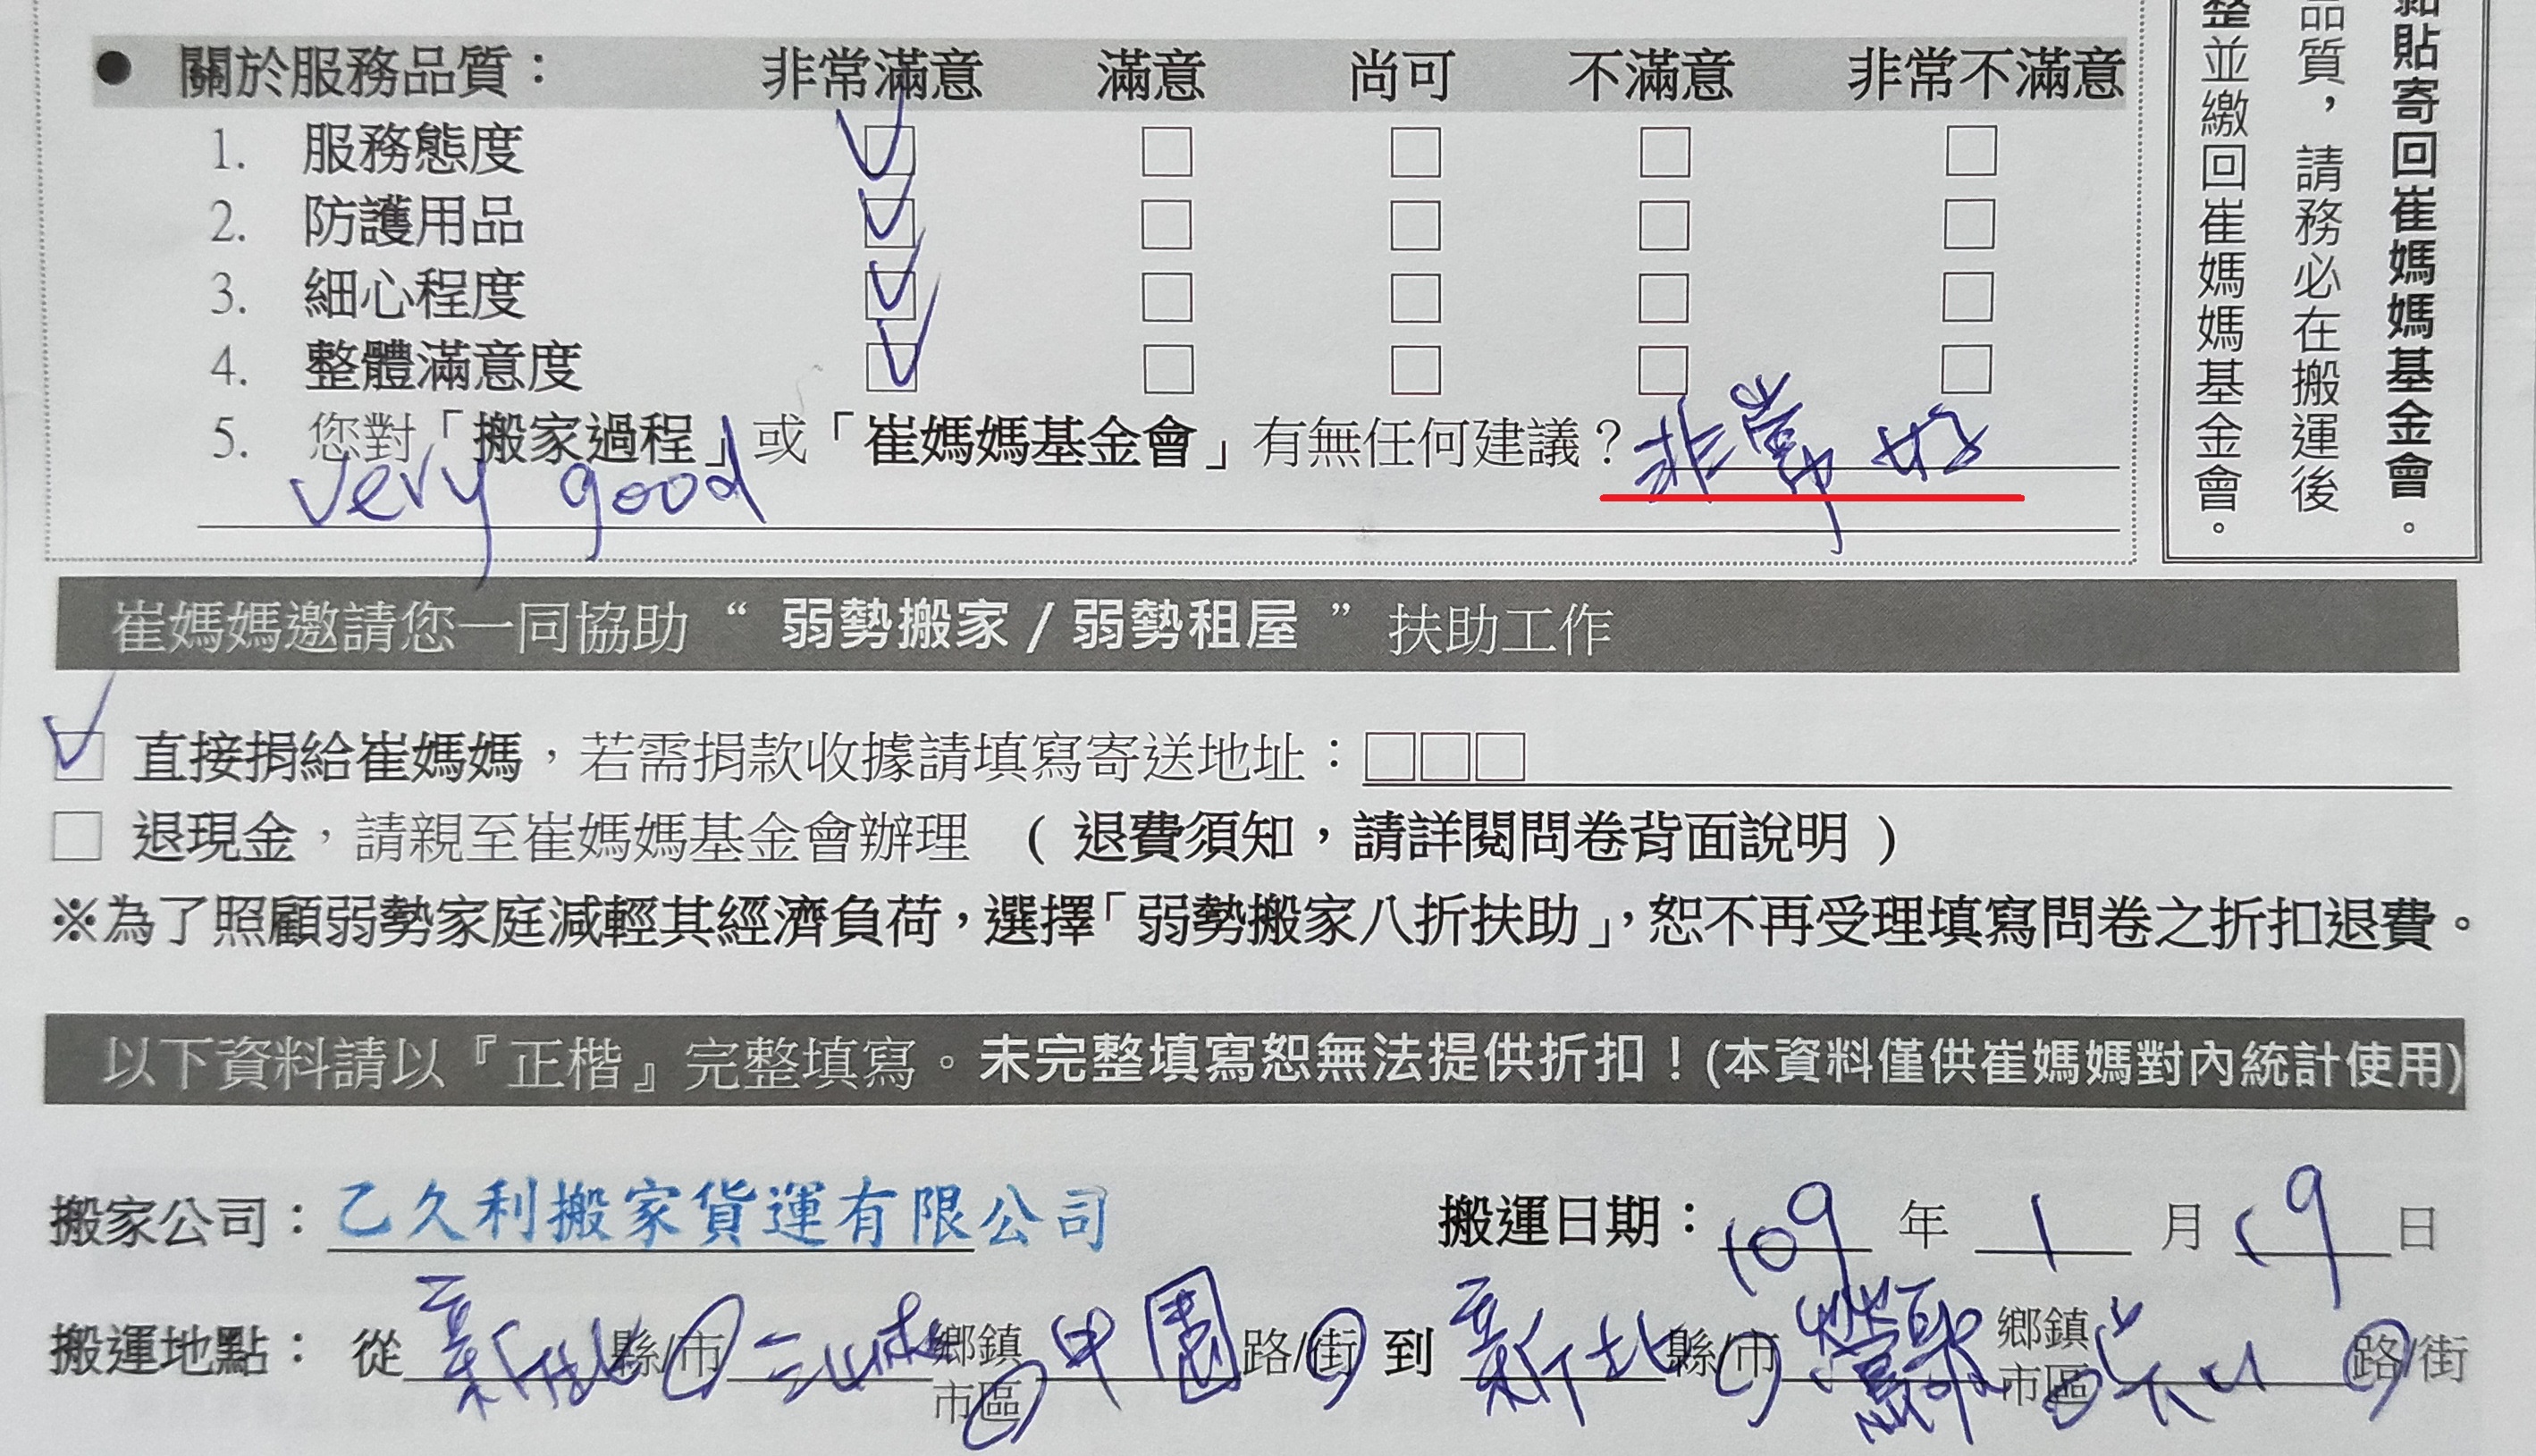 ● 關於服務品質： 非常滿意 滿意 尚可 不滿意 非常不滿意
1. 服務態度 ☑ □ □ □ □
2. 防護用品 ☑ □ □ □ □
3. 細心程度 ☑ □ □ □ □
4. 整體滿意度 ☑ □ □ □ □
5. 您對「搬家過程」或「崔媽媽基金會」有無任何建議？非常好
very good
黏貼寄回崔媽媽基金會。
品質，請務必在搬運後
整並繳回崔媽媽基金會。
崔媽媽邀請您一同協助 “ 弱勢搬家 / 弱勢租屋 ” 扶助工作
☑ 直接捐給崔媽媽，若需捐款收據請填寫寄送地址：□□□
□ 退現金，請親至崔媽媽基金會辦理 ( 退費須知，請詳閱問卷背面說明 )
※為了照顧弱勢家庭減輕其經濟負荷，選擇「弱勢搬家八折扶助」，恕不再受理填寫問卷之折扣退費。
以下資料請以『正楷』完整填寫。未完整填寫恕無法提供折扣！(本資料僅供崔媽媽對內統計使用)
搬家公司：乙久利搬家貨運有限公司 搬運日期：109 年 1 月 19 日
搬運地點： 從 新北 縣/市 鄉鎮市區 路/街 到 新北 縣/市 鶯歌 鄉鎮市區 路/街